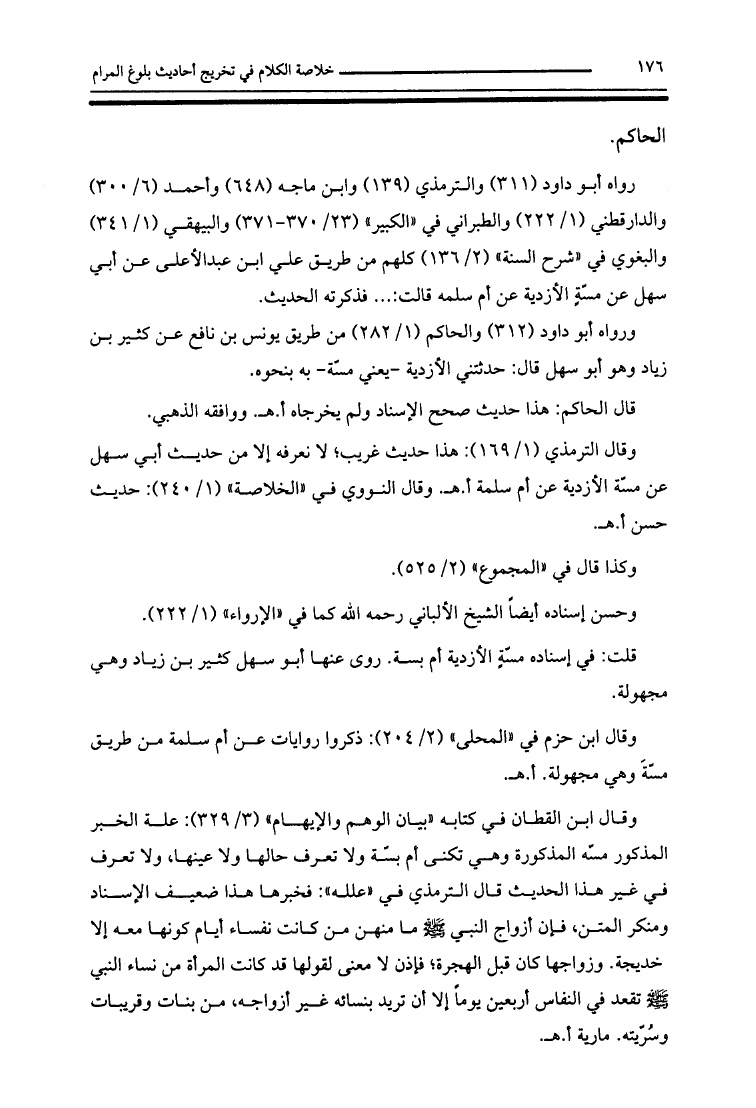 ١٧٦ خلاصة الكلام في تخريج أحاديث بلوغ المرام
الحاكم.
رواه أبو داود (٣١١) والترمذي (١٣٩) وابن ماجه (٦٤٨) وأحمد (٦/ ٣٠٠)
والدارقطني (١/ ٢٢٢) والطبراني في «الكبير» (٢٣/ ٣٧٠-٣٧١) والبيهقي (١/ ٣٤١)
والبغوي في «شرح السنة» (٢/ ١٣٦) كلهم من طريق علي ابن عبدالأعلى عن أبي
سهل عن مسّةٍ الأزدية عن أم سلمه قالت:... فذكرته الحديث.
ورواه أبو داود (٣١٢) والحاكم (١/ ٢٨٢) من طريق يونس بن نافع عن كثير بن
زياد وهو أبو سهل قال: حدثتني الأزدية -يعني مسّة- به بنحوه.
قال الحاكم: هذا حديث صحح الإسناد ولم يخرجاه أ.هـ. ووافقه الذهبي.
وقال الترمذي (١/ ١٦٩): هذا حديث غريب؛ لا نعرفه إلا من حديث أبي سهل
عن مسّة الأزدية عن أم سلمة أ.هـ. وقال النووي في «الخلاصة» (١/ ٢٤٠): حديث
حسن أ.هـ.
وكذا قال في «المجموع» (٢/ ٥٢٥).
وحسن إسناده أيضاً الشيخ الألباني رحمه الله كما في «الإرواء» (١/ ٢٢٢).
قلت: في إسناده مسّةٍ الأزدية أم بسة. روى عنها أبو سهل كثير بن زياد وهي
مجهولة.
وقال ابن حزم في «المحلى» (٢/ ٢٠٤): ذكروا روايات عن أم سلمة من طريق
مسّةَ وهي مجهولة. أ.هـ.
وقال ابن القطان في كتابه «بيان الوهم والإيهام» (٣/ ٣٢٩): علة الخبر
المذكور مسّه المذكورة وهي تكنى أم بسّة ولا تعرف حالها ولا عينها، ولا تعرف
في غير هذا الحديث قال الترمذي في «علله»: فخبرها هذا ضعيف الإسناد
ومنكر المتن، فإن أزواج النبي ﷺ ما منهن من كانت نفساء أيام كونها معه إلا
خديجة. وزواجها كان قبل الهجرة؛ فإذن لا معنى لقولها قد كانت المرأة من نساء النبي
ﷺ تقعد في النفاس أربعين يوماً إلا أن تريد بنسائه غير أزواجه، من بنات وقريبات
وسُرّيته. مارية أ.هـ.